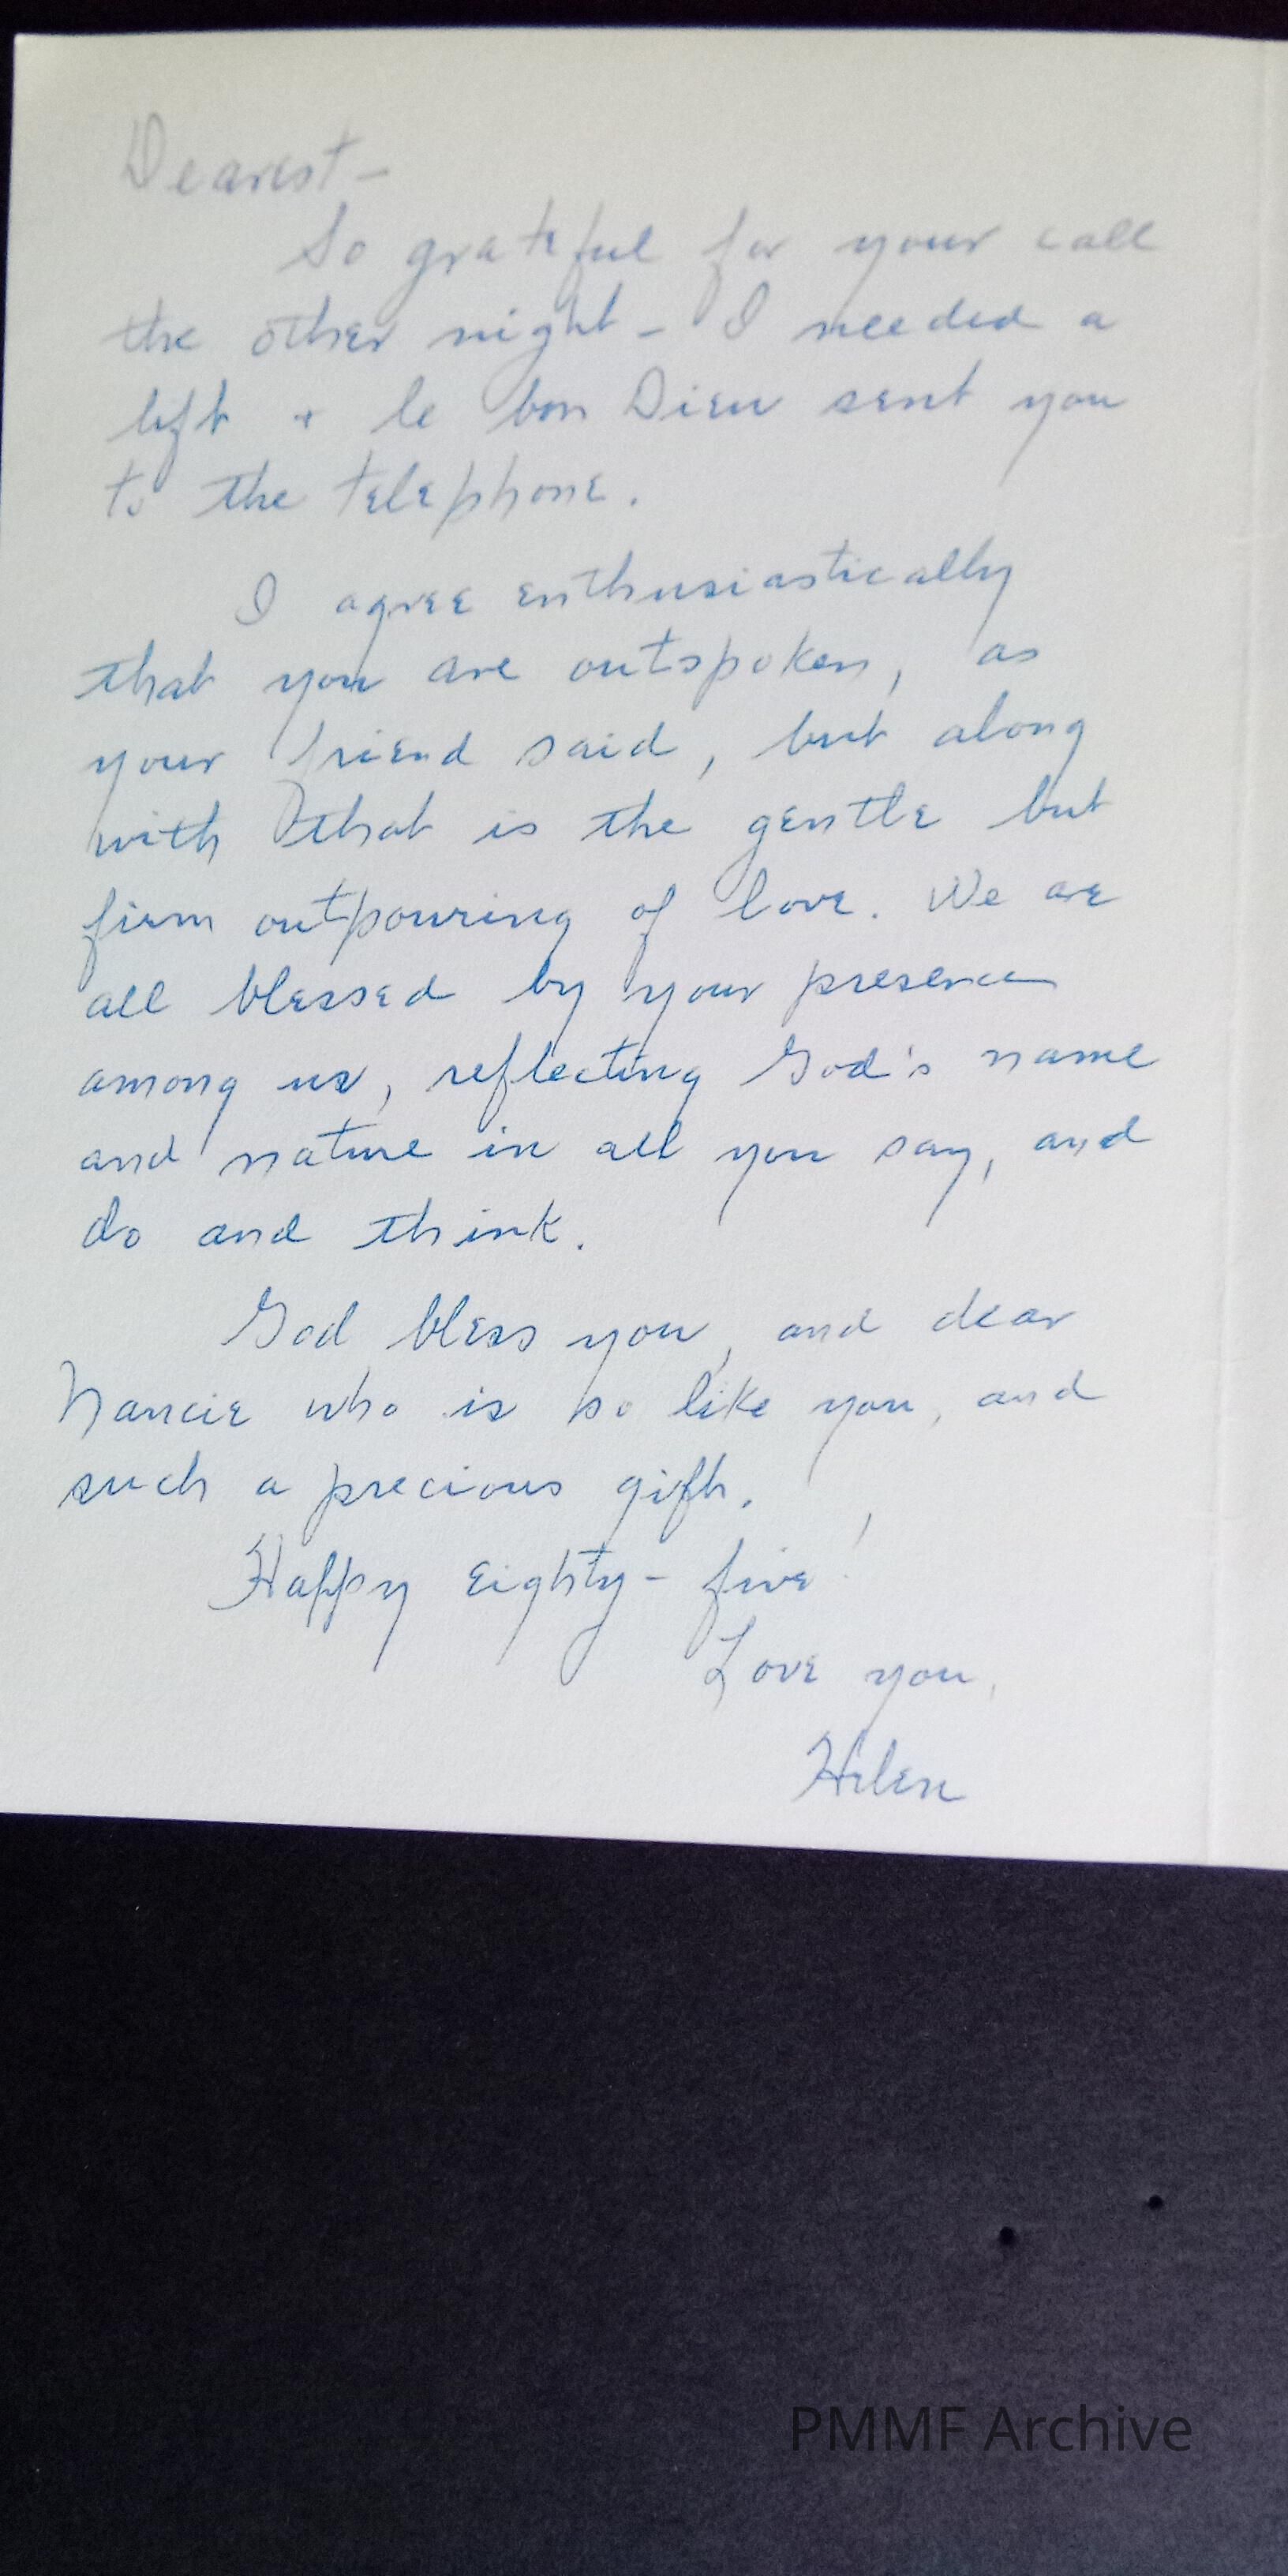 Dearest -
So grateful for your call
the other night - I needed a
lift + le bon Dieu sent you
to the telephone.
I agree enthusiastically
that you are outspoken, as
your friend said, but along
with that is the gentle but
firm outpouring of love. We are
all blessed by your presence
among us, reflecting God's name
and nature in all you say, and
do and think.
God bless you, and dear
Nancie who is so like you, and
such a precious gift.
Happy Eighty-five!
Love you,
Helen
PMMF Archive